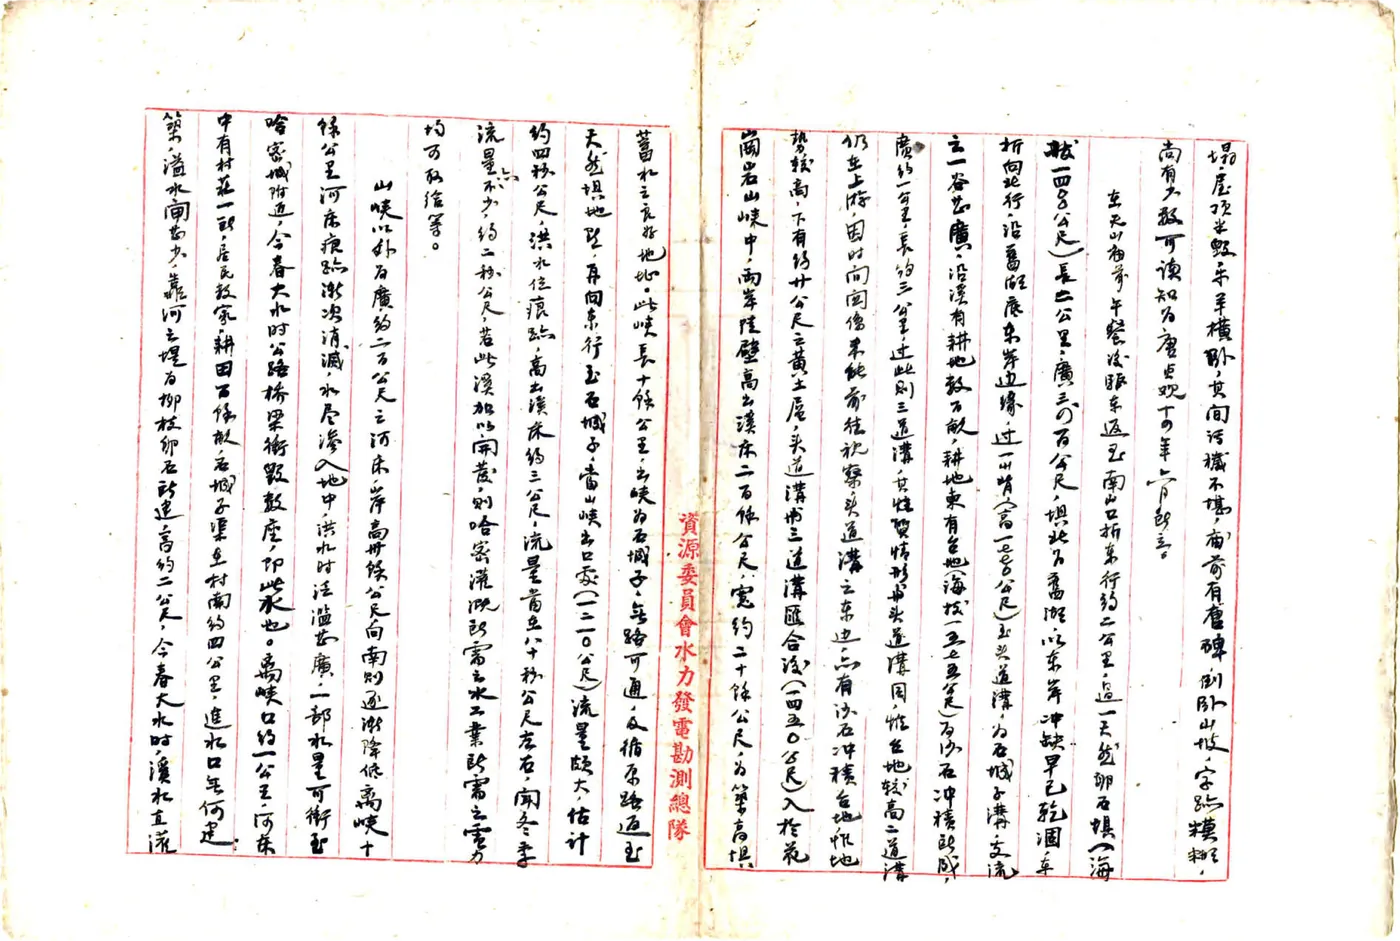 塌，屋頂坐毀，朱羊橫卧，其間污穢不堪，廟前有舊碑，倒卧山坡，字跡糢糊，
尚有少數可讀知為唐貞观十四年六月所立。
在天山廟前午餐後驅車返至南山口折東行約二公里，過一天然卵石壩（海
拔一四〇〇公尺）長二公里，廣三四百公尺，壩北为舊湖，以东岸冲缺早已乾涸，车
折向北行，沿舊湖底东岸边缘，过一州背（高一七七〇公尺）至头道溝，为石城子溝之支流
之一，谷甚廣，沿溪有耕地数百畝，耕地東有台地（海拔一五七五公尺）为沙石冲積所成，
廣約一公里，長約三公里，过此则三道溝，其性質情形与头道溝同，惟台地较高，二道溝
仍在上游，因时间関係未能前往視察，头道溝之东边，亦有沙石冲積台地，惟地
勢较高，下有約廿公尺之黄土層，头道溝与三道溝匯合後（一四五〇公尺）入於花
崗岩山峽中，兩岸陡壁高出溪床二百餘公尺，寬約二十餘公尺，为築高壩
蓄水之良好地址。此峽長十餘公里，出峽为石城子，無路可通，及循原路返至
天然壩地點，再向东行至石城子，當山峽出口處（一二一〇公尺）流量頗大，估計
約四秒公尺，洪水位痕跡，高出溪床約三公尺，流量當在八十秒公尺左右，聞冬季
流量亦不少，約二秒公尺，若此溪加以開發，则哈密灌溉所需之水，工業所需之電力
均可取給焉。
山峽以外为廣約二百公尺之河床，岸高卅餘公尺，向南则逐漸降低，离峽十
餘公里河床痕跡漸次消滅，水尽滲入地中，洪水时泛濫甚廣，一部水量可衝至
哈密城附近，今春大水时公路桥梁衝毀数座，即此水也。离峽口約一公里，河床
中有村莊一所，居民数家，耕田百餘畝，石城子渠在村南約四公里，進水口無何建
築，溢水闸甚少，靠河之堤为柳枝卵石所建，高約二公尺，今春大水时，溪水直灌
資源委員會水力發電勘測總隊